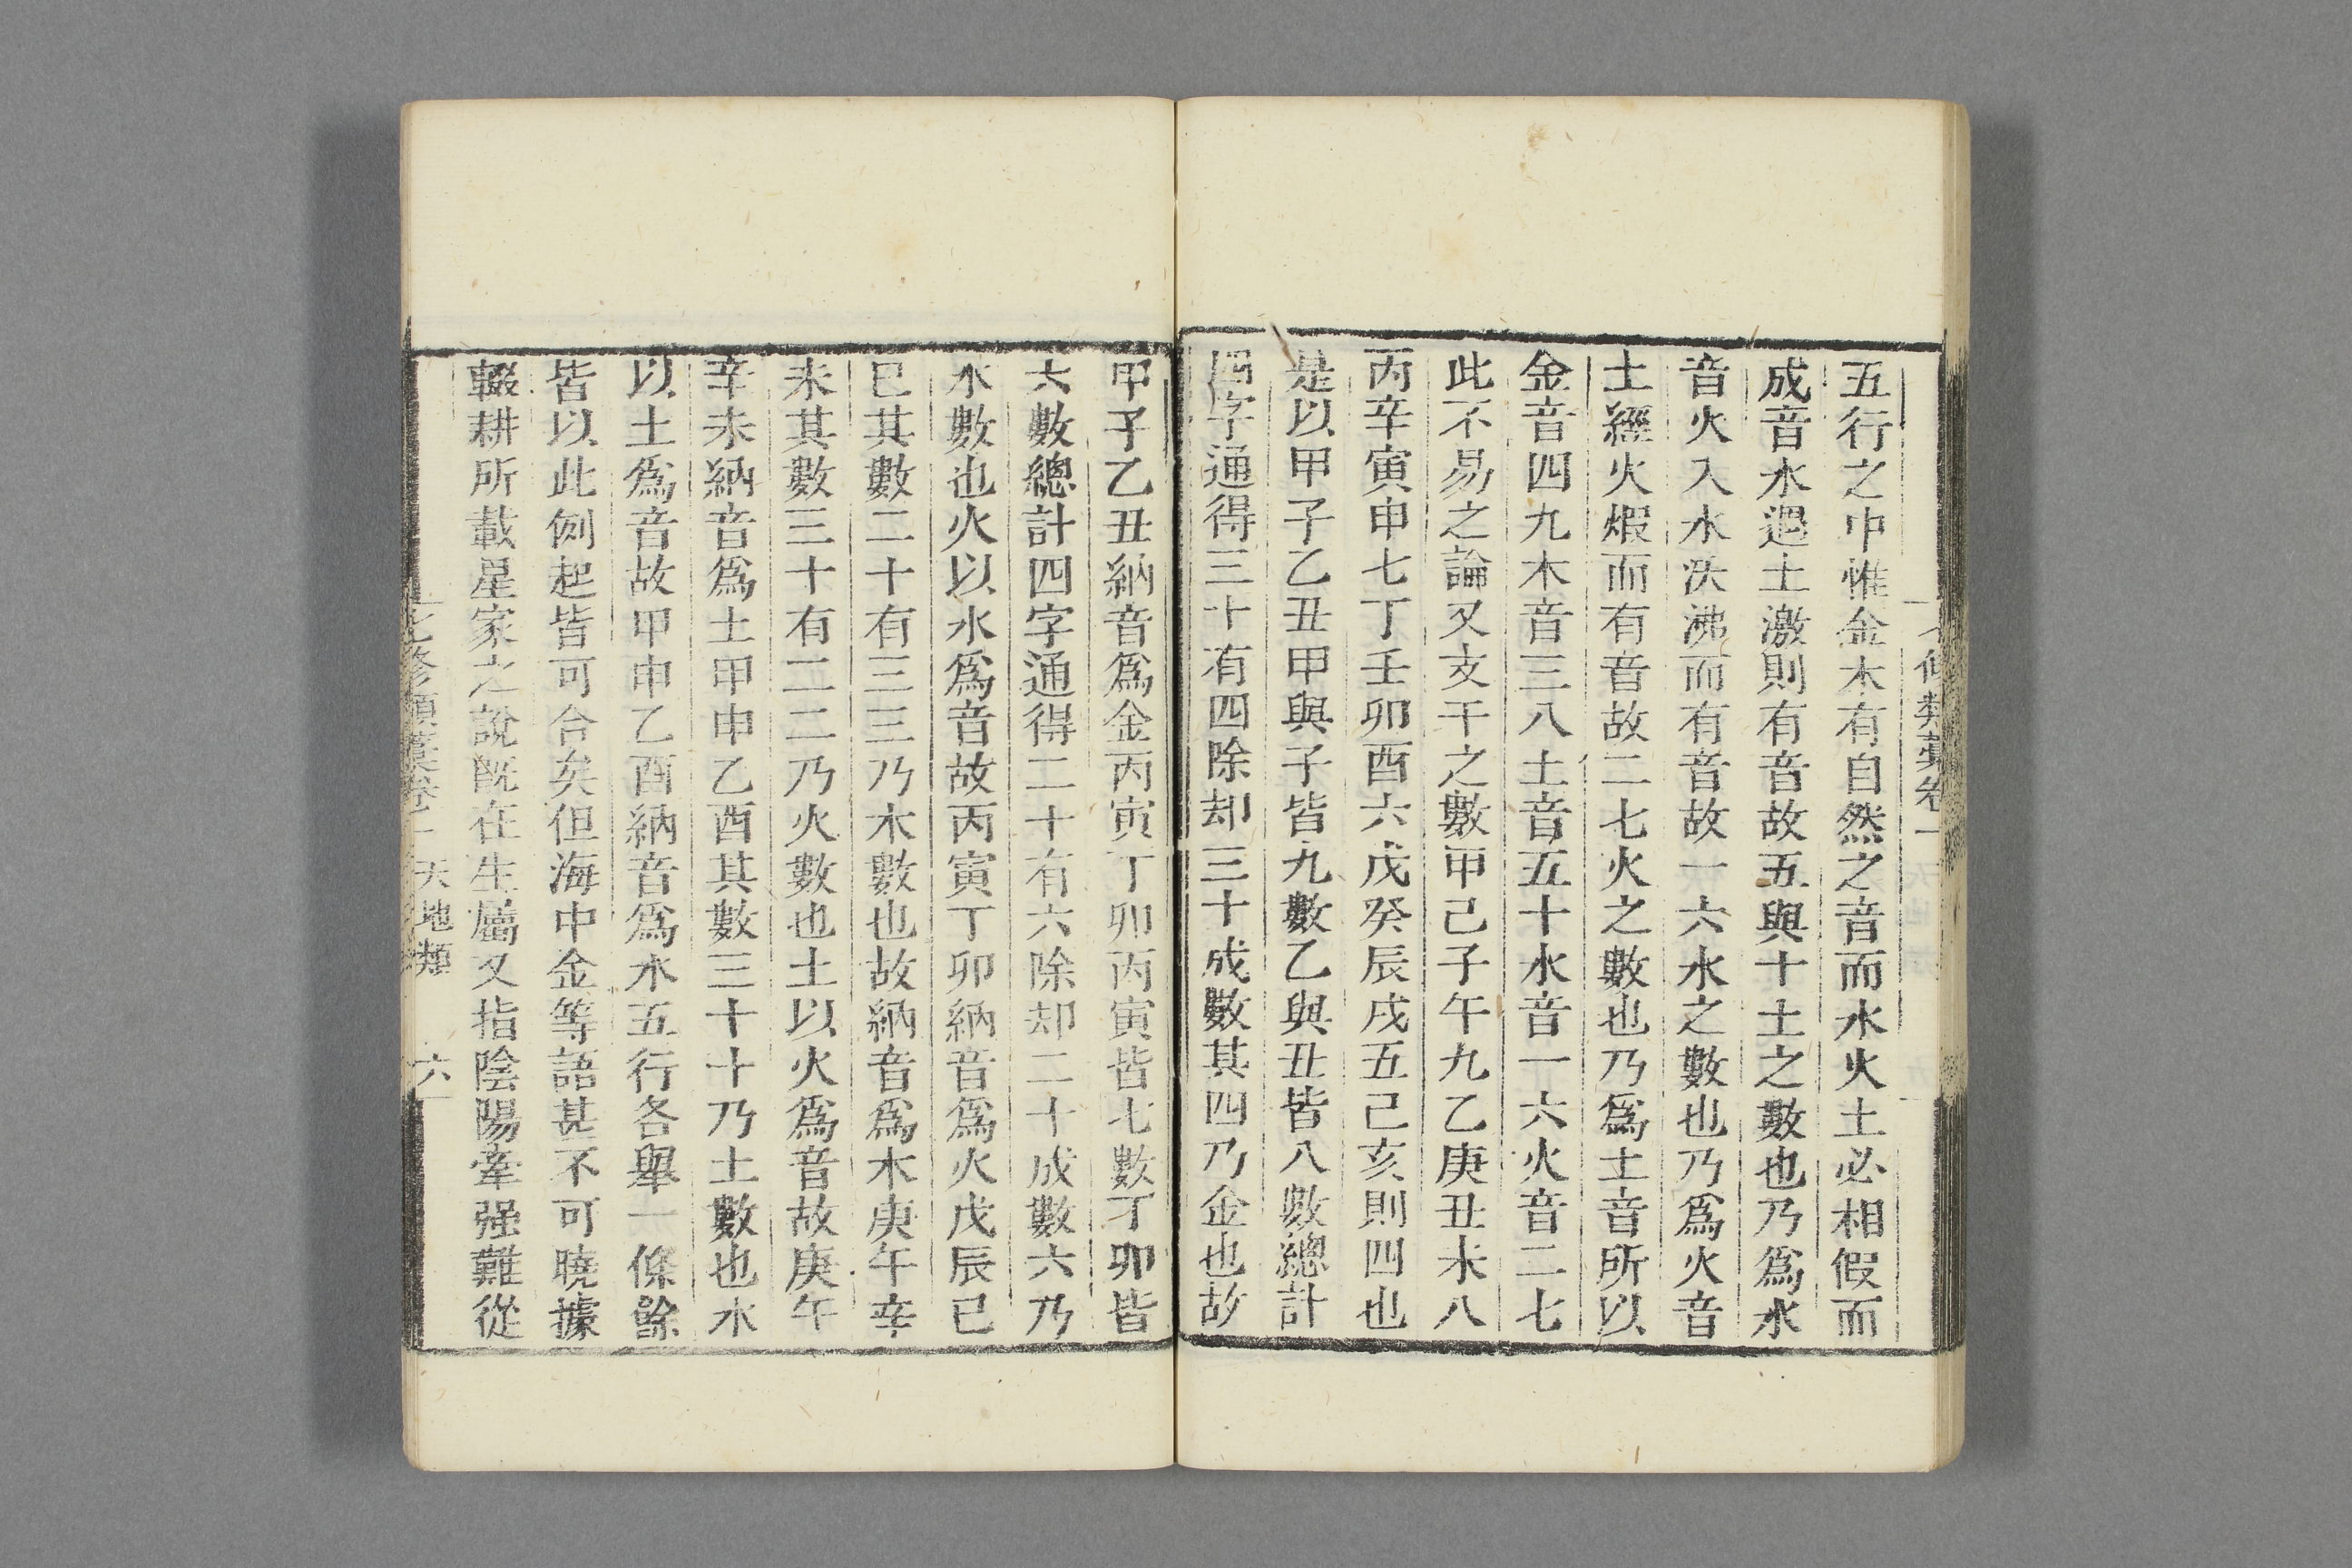 五行之中惟金木有自然之音而水火土必相假而
成音水遇土激則有音故五與十土之數也乃爲水
音火入水沃沸而有音故一六水之數也乃爲火音
土經火煅而有音故二七火之數也乃爲土音所以
金音四九木音三八土音五十水音一六火音二七
此不易之論又支干之數甲己子午九乙庚丑未八
丙辛寅申七丁壬卯酉六戊癸辰戌五己亥則四也
是以甲子乙丑甲與子皆九數乙與丑皆八數總計
四字通得三十有四除却三十成數其四乃金也故
甲子乙丑納音爲金丙寅丁卯丙寅皆七數丁卯皆
六數總計四字通得二十有六除却二十成數六乃
水數也火以水爲音故丙寅丁卯納音爲火戊辰己
巳其數二十有三三乃木數也故納音爲木庚午辛
未其數三十有二二乃火數也土以火爲音故庚午
辛未納音爲土甲申乙酉其數三十十乃土數也水
以土爲音故甲申乙酉納音爲水五行各舉一條餘
皆以此例起皆可合矣但海中金等語甚不可曉據
輟耕所載星家之說既在生屬又指陰陽牽强難從
七修類藁卷一 天地類 六